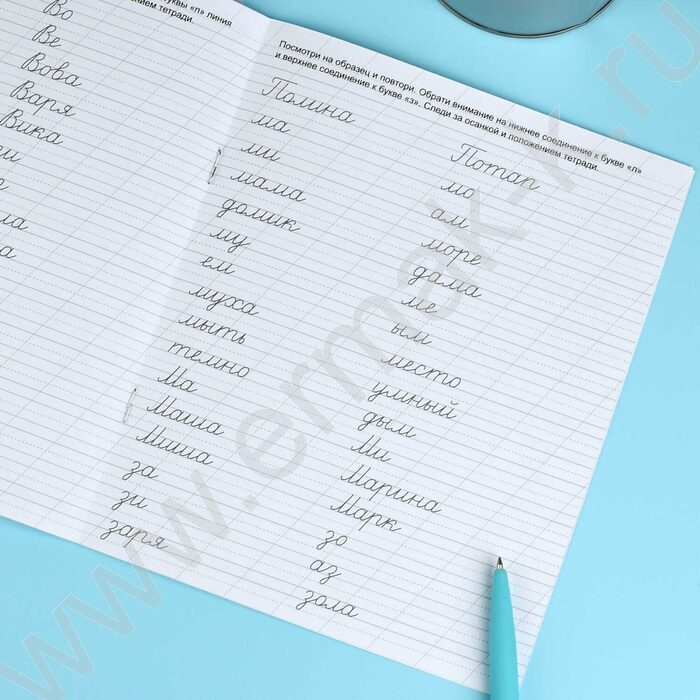 буквы «п» линия
нием тетради.
Во
Ве
Вова
Варя
Вика
ла
а
Посмотри на образец и повтори. Обрати внимание на нижнее соединение к букве «л»
и верхнее соединение к букве «з». Следи за осанкой и положением тетради.
Полина
ма
ми
мама
домик
му
ем
муха
мыть
темно
Ма
Маша
Миша
за
зи
заря
Потап
мо
ам
море
дама
ме
ым
место
умный
дым
Ми
Марина
Марк
зо
аз
зола
www.ermak-k.ru